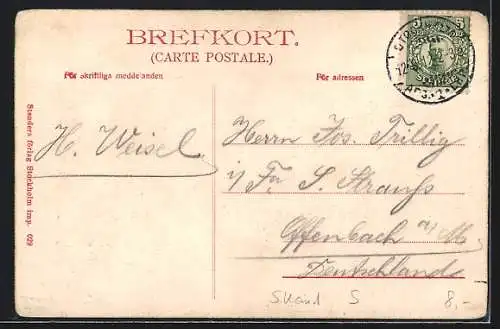 BREFKORT.
(CARTE POSTALE.)
För Skriftliga meddelanden
För adressen
H. Weisel.
Herrn Jos. Trillig
i/ Fa S. Strauss
Offenbach a/M.
Deutschland
Standers förlag Stockholm imp. 029
S
8,-